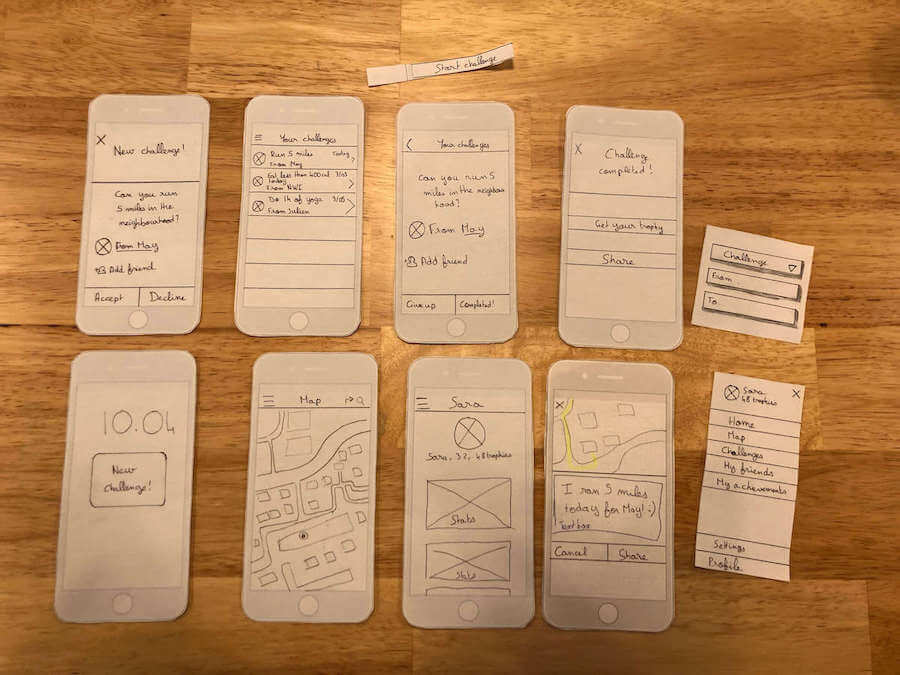 Start challenge
New challenge!
Can you run
5 miles in the
neighbourhood?
From May
Add friend
Accept
Decline
Your challenges
Run 5 miles
Today
From May
Eat less than 400 cal
3/05
today
From NWI
Do 1h of yoga
3/05
From Julien
Your challenges
Can you run 5
miles in the neighbour
hood?
From May
Add friend
Give up
Completed!
Challenge
completed!
Get your trophy
Share
Challenge
From
To
10.04
New
challenge!
Map
Sara
Sara, 32, 48 trophies
Stats
Stats
I ran 5 miles
today for May! :)
Text box
Cancel
Share
Sara
48 trophies
Home
Map
Challenges
My friends
My achievements
Settings
Profile